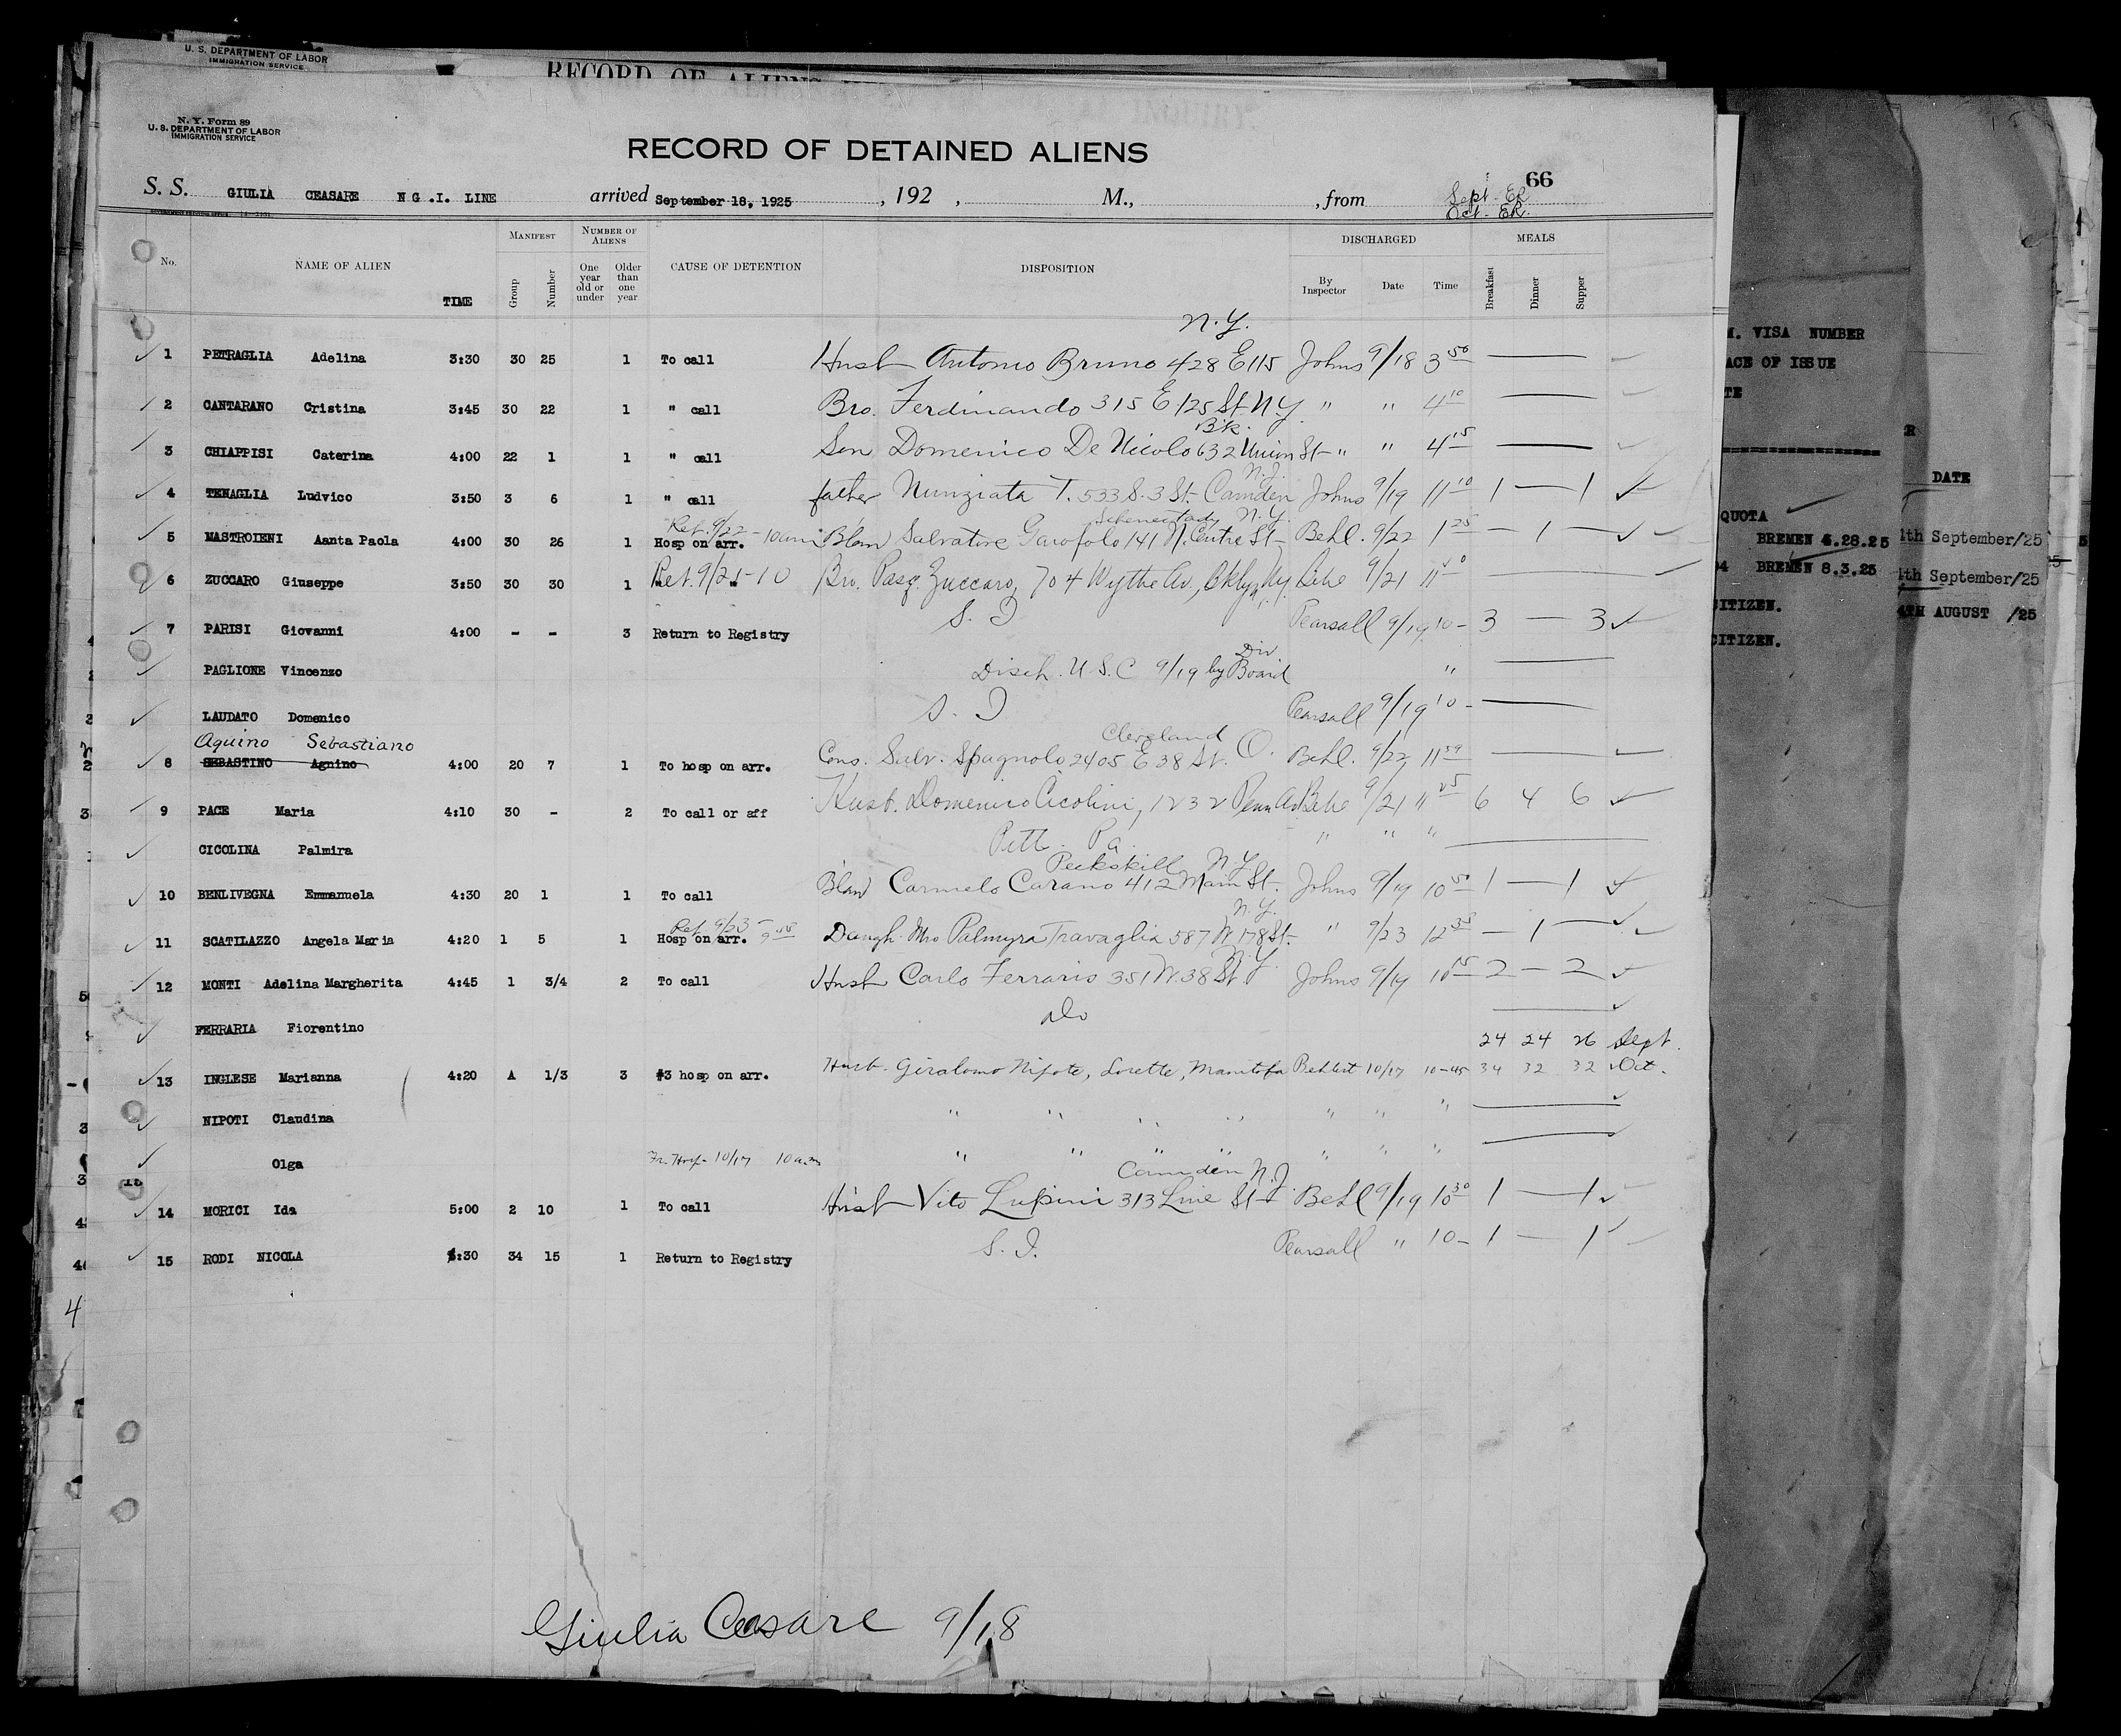 U. S. DEPARTMENT OF LABOR
IMMIGRATION SERVICE
RECORD OF ALIENS
N. Y. Form 89
U. S. DEPARTMENT OF LABOR
IMMIGRATION SERVICE
RECORD OF DETAINED ALIENS
66
S. S. GIULIA CEASARE N G .I. LINE arrived September 18, 1925 , 192 , M., , from Sept - ER
Oct - ER.
No. NAME OF ALIEN TIME MANIFEST Group Number NUMBER OF ALIENS One year old or under Older than one year CAUSE OF DETENTION DISPOSITION DISCHARGED By Inspector Date Time MEALS Breakfast Dinner Supper
N.Y.
1 PETRAGLIA Adelina 3:30 30 25 1 To call Husb Antonio Bruno 428 E 115 Johns 9/18 3 50
2 CANTARANO Cristina 3:45 30 22 1 " call Bro. Ferdinando 315 E 125 St N Y " " 4 10
Bk.
3 CHIAPPISI Caterina 4:00 22 1 1 " call Son Domenico De Nicolo 632 Union St " " 4 15
N.J.
4 TENAGLIA Ludvico 3:50 3 6 1 " call father Nunziata T. 533 S. 3 St. Camden Johns 9/19 11 10 1 — 1
Ret. 9/22 - 10 am Schenectady N.Y.
5 MASTROIENI Aanta Paola 4:00 30 26 1 Hosp on arr. Blaw Salvatore Garofolo 141 N. Centre St Behl. 9/22 1 25 — 1 —
6 ZUCCARO Giuseppe 3:50 30 30 1 Ret. 9/21-10 " Bro. Pasq. Zuccaro, 704 Wythe Av., Bklyn, N.Y. 9/21
7 PARISI Giovanni 4:00 - - 3 Return to Registry S. I Pearsall 9/19 10 - 3 — 3
PAGLIONE Vincenzo Disch. U S. C 9/19 by Div Board "
LAUDATO Domenico S. I Pearsall 9/19 10 -
Aquino Sebastiano Cleveland
8 SEBASTINO Agnino 4:00 20 7 1 To hosp on arr. Cous. Salv. Spagnolo 2405 E 38 St. O. Behl. 9/22 11 59
9 PACE Maria 4:10 30 - 2 To call or aff Husb. Domenico Cicolini, 1232 Penn Av 9/21 11 25 6 4 6
CICOLINA Palmira Pitt. Pa. " " "
Peekskill N.Y
10 BENLIVEGNA Emmanuela 4:30 20 1 1 To call Blaw Carmelo Carano 412 Main St. Johns 9/19 10 50 1 — 1
Ret 9/23 - 9 45 N.Y.
11 SCATILAZZO Angela Maria 4:20 1 5 1 Hosp on arr. Daugh. Mrs Palmyra Travaglia 587 W 178 St. " 9/23 12 35 — 1 —
N.Y.
12 MONTI Adelina Margherita 4:45 1 3/4 2 To call Husb Carlo Ferraris 351 W. 38 St Johns 9/19 10 15 2 — 2
FERRARIA Fiorentino do
24 24 26 Sept.
13 INGLESE Marianna 4:20 A 1/3 3 #3 hosp on arr. Husb. Giralomo Nipote, Lorette, Manitoba 10/17 10-45 34 32 32 Oct.
NIPOTI Claudina " " " " " " "
Olga Fr. Hosp- 10/17 10 a.m " " " " " " "
Camden N.J.
14 MORICI Ida 5:00 2 10 1 To call Husb Vito Lupini 313 Line St Behl 9/19 10 30 1 — 1
15 RODI NICOLA 5:30 34 15 1 Return to Registry S. I. Pearsall " 10 - 1 — 1
Giulia Cesare 9/18
M. VISA NUMBER
ACE OF ISSUE
TE
DATE
QUOTA
BREMEN 4.28.25 1th September/25
BREMEN 8.3.25 4th September/25
CITIZEN. 4TH AUGUST /25
CITIZEN.